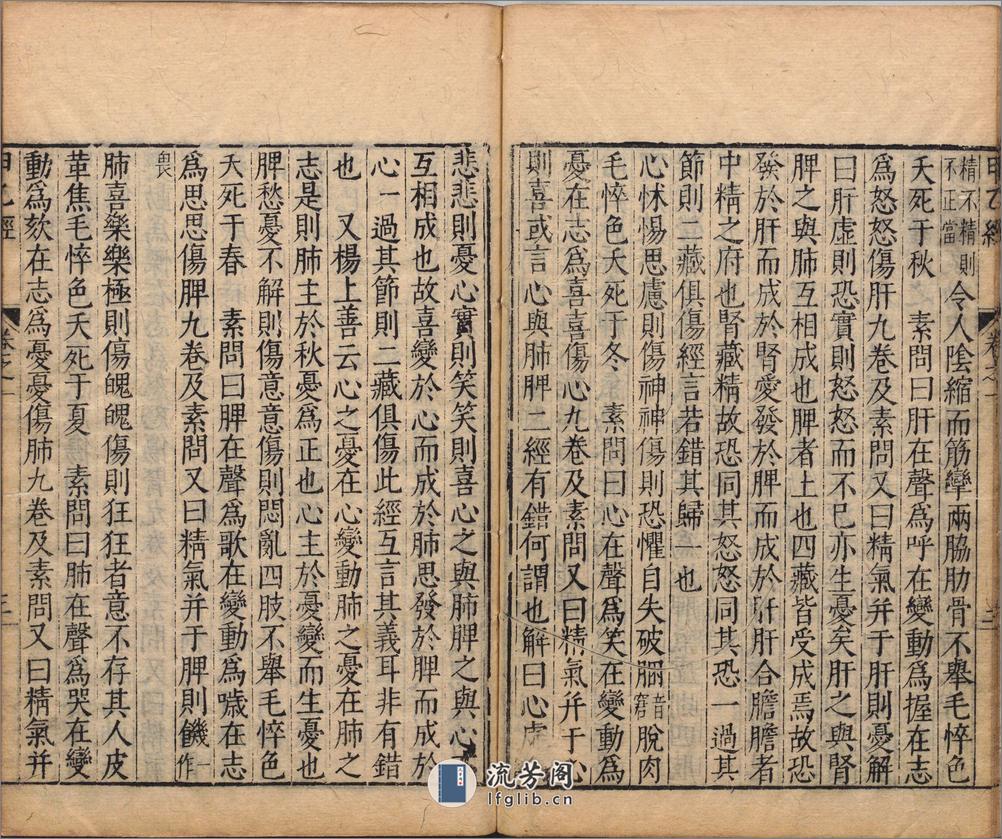 甲乙經 卷之一 三
精不精則
不正當
令人陰縮而筋攣兩脇肋骨不舉毛悴色
夭死于秋 素問曰肝在聲爲呼在變動爲握在志
爲怒怒傷肝九卷及素問又曰精氣并于肝則憂解
曰肝虛則恐實則怒怒而不已亦生憂矣肝之與腎
脾之與肺互相成也脾者土也四藏皆受成焉故恐
發於肝而成於腎愛發於脾而成於肝肝合膽膽者
中精之府也腎藏精故恐同其怒怒同其恐一過其
節則二藏俱傷經言若錯其歸一也
心怵惕思慮則傷神神傷則恐懼自失破䐃音窘脫肉
毛悴色夭死于冬 素問曰心在聲爲笑在變動爲
憂在志爲喜喜傷心九卷及素問又曰精氣并于心
則喜或言心與肺脾二經有錯何謂也解曰心虛
悲悲則憂心實則笑笑則喜心之與肺脾之與心
互相成也故喜變於心而成於肺思發於脾而成於
心一過其節則二藏俱傷此經互言其義耳非有錯
也 又楊上善云心之憂在心變動肺之憂在肺之
志是則肺主於秋憂爲正也心主於憂變而生憂也
脾愁憂不解則傷意意傷則悶亂四肢不舉毛悴色
夭死于春 素問曰脾在聲爲歌在變動爲噦在志
爲思思傷脾九卷及素問又曰精氣并于脾則饑一作
畏
肺喜樂樂極則傷魄魄傷則狂狂者意不存其人皮
革焦毛悴色夭死于夏 素問曰肺在聲爲哭在變
動爲欬在志爲憂憂傷肺九卷及素問又曰精氣并
甲乙經 卷之一 三
流芳阁
lfglib.cn